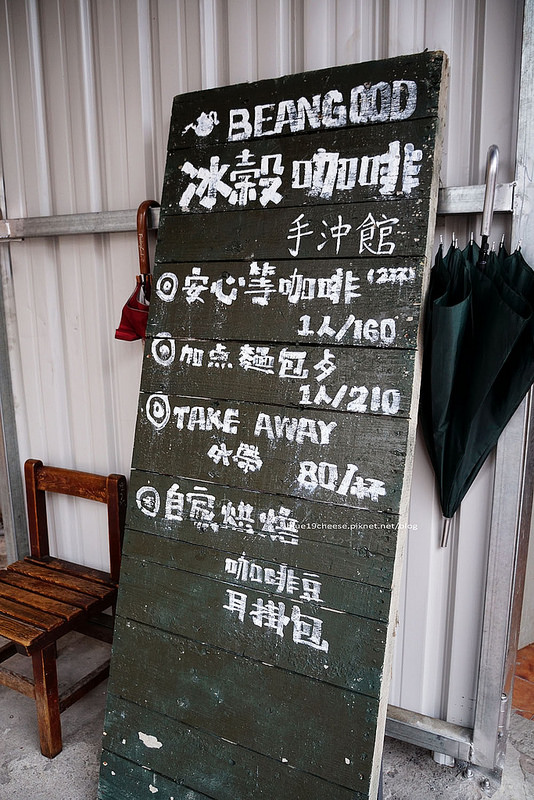 BEANGOOD
冰穀咖啡
手沖館
安心等咖啡
1人/160
加点麵包
1人/210
TAKE AWAY
外帶
80/杯
自家烘焙
咖啡豆
耳掛包